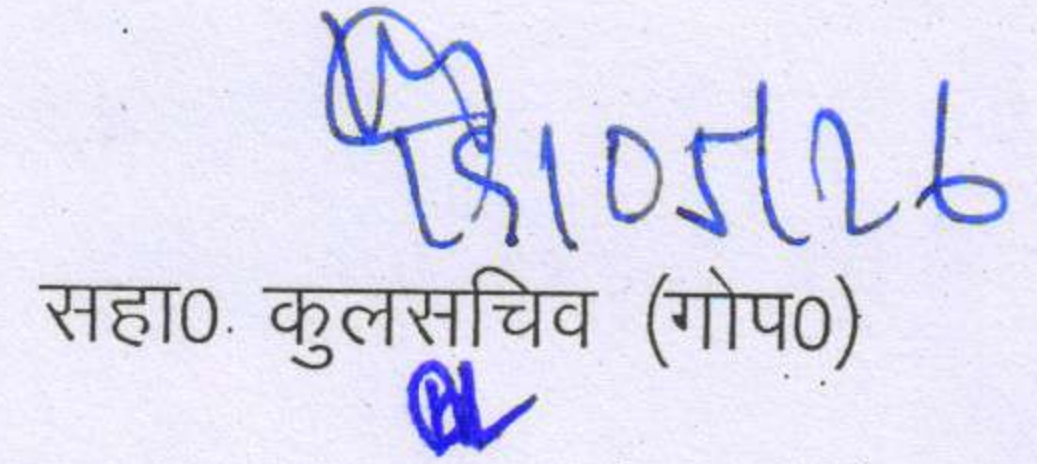 05/26
सहा0. कुलसचिव (गोप0)